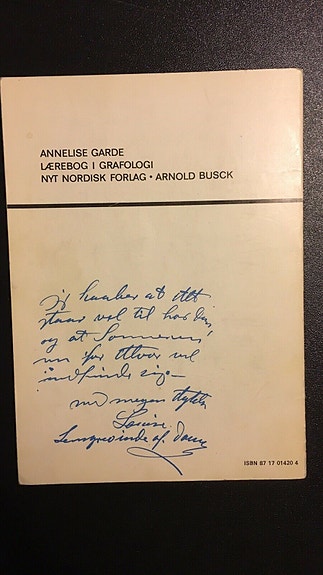 ANNELISE GARDE
LÆREBOG I GRAFOLOGI
NYT NORDISK FORLAG • ARNOLD BUSCK
jeg haaber at Alt
staar vel til hos Dig,
og at Sommeren,
nu for Alvor vil
indfinde sig –
med megen
Louise
af
ISBN 87 17 01420 4